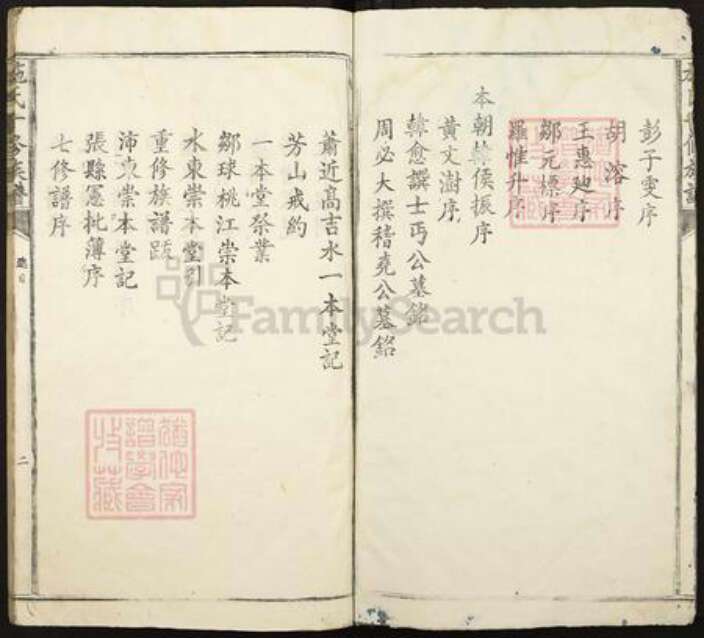 彭子雯序
胡溶序
王惠廸序
鄒元標序
羅惟升序
本朝韓侯振序
黃文澍序
韓愈譔士丐公墓銘
周必大撰稽堯公墓銘
蕭近高吉水一本堂記
芳山戒約
一本堂祭業
鄒球桃江崇本堂記
水東崇本堂引
重修族譜跋
沛東崇本堂記
張縣憲批薄序
七修譜序
總目
二
FamilySearch